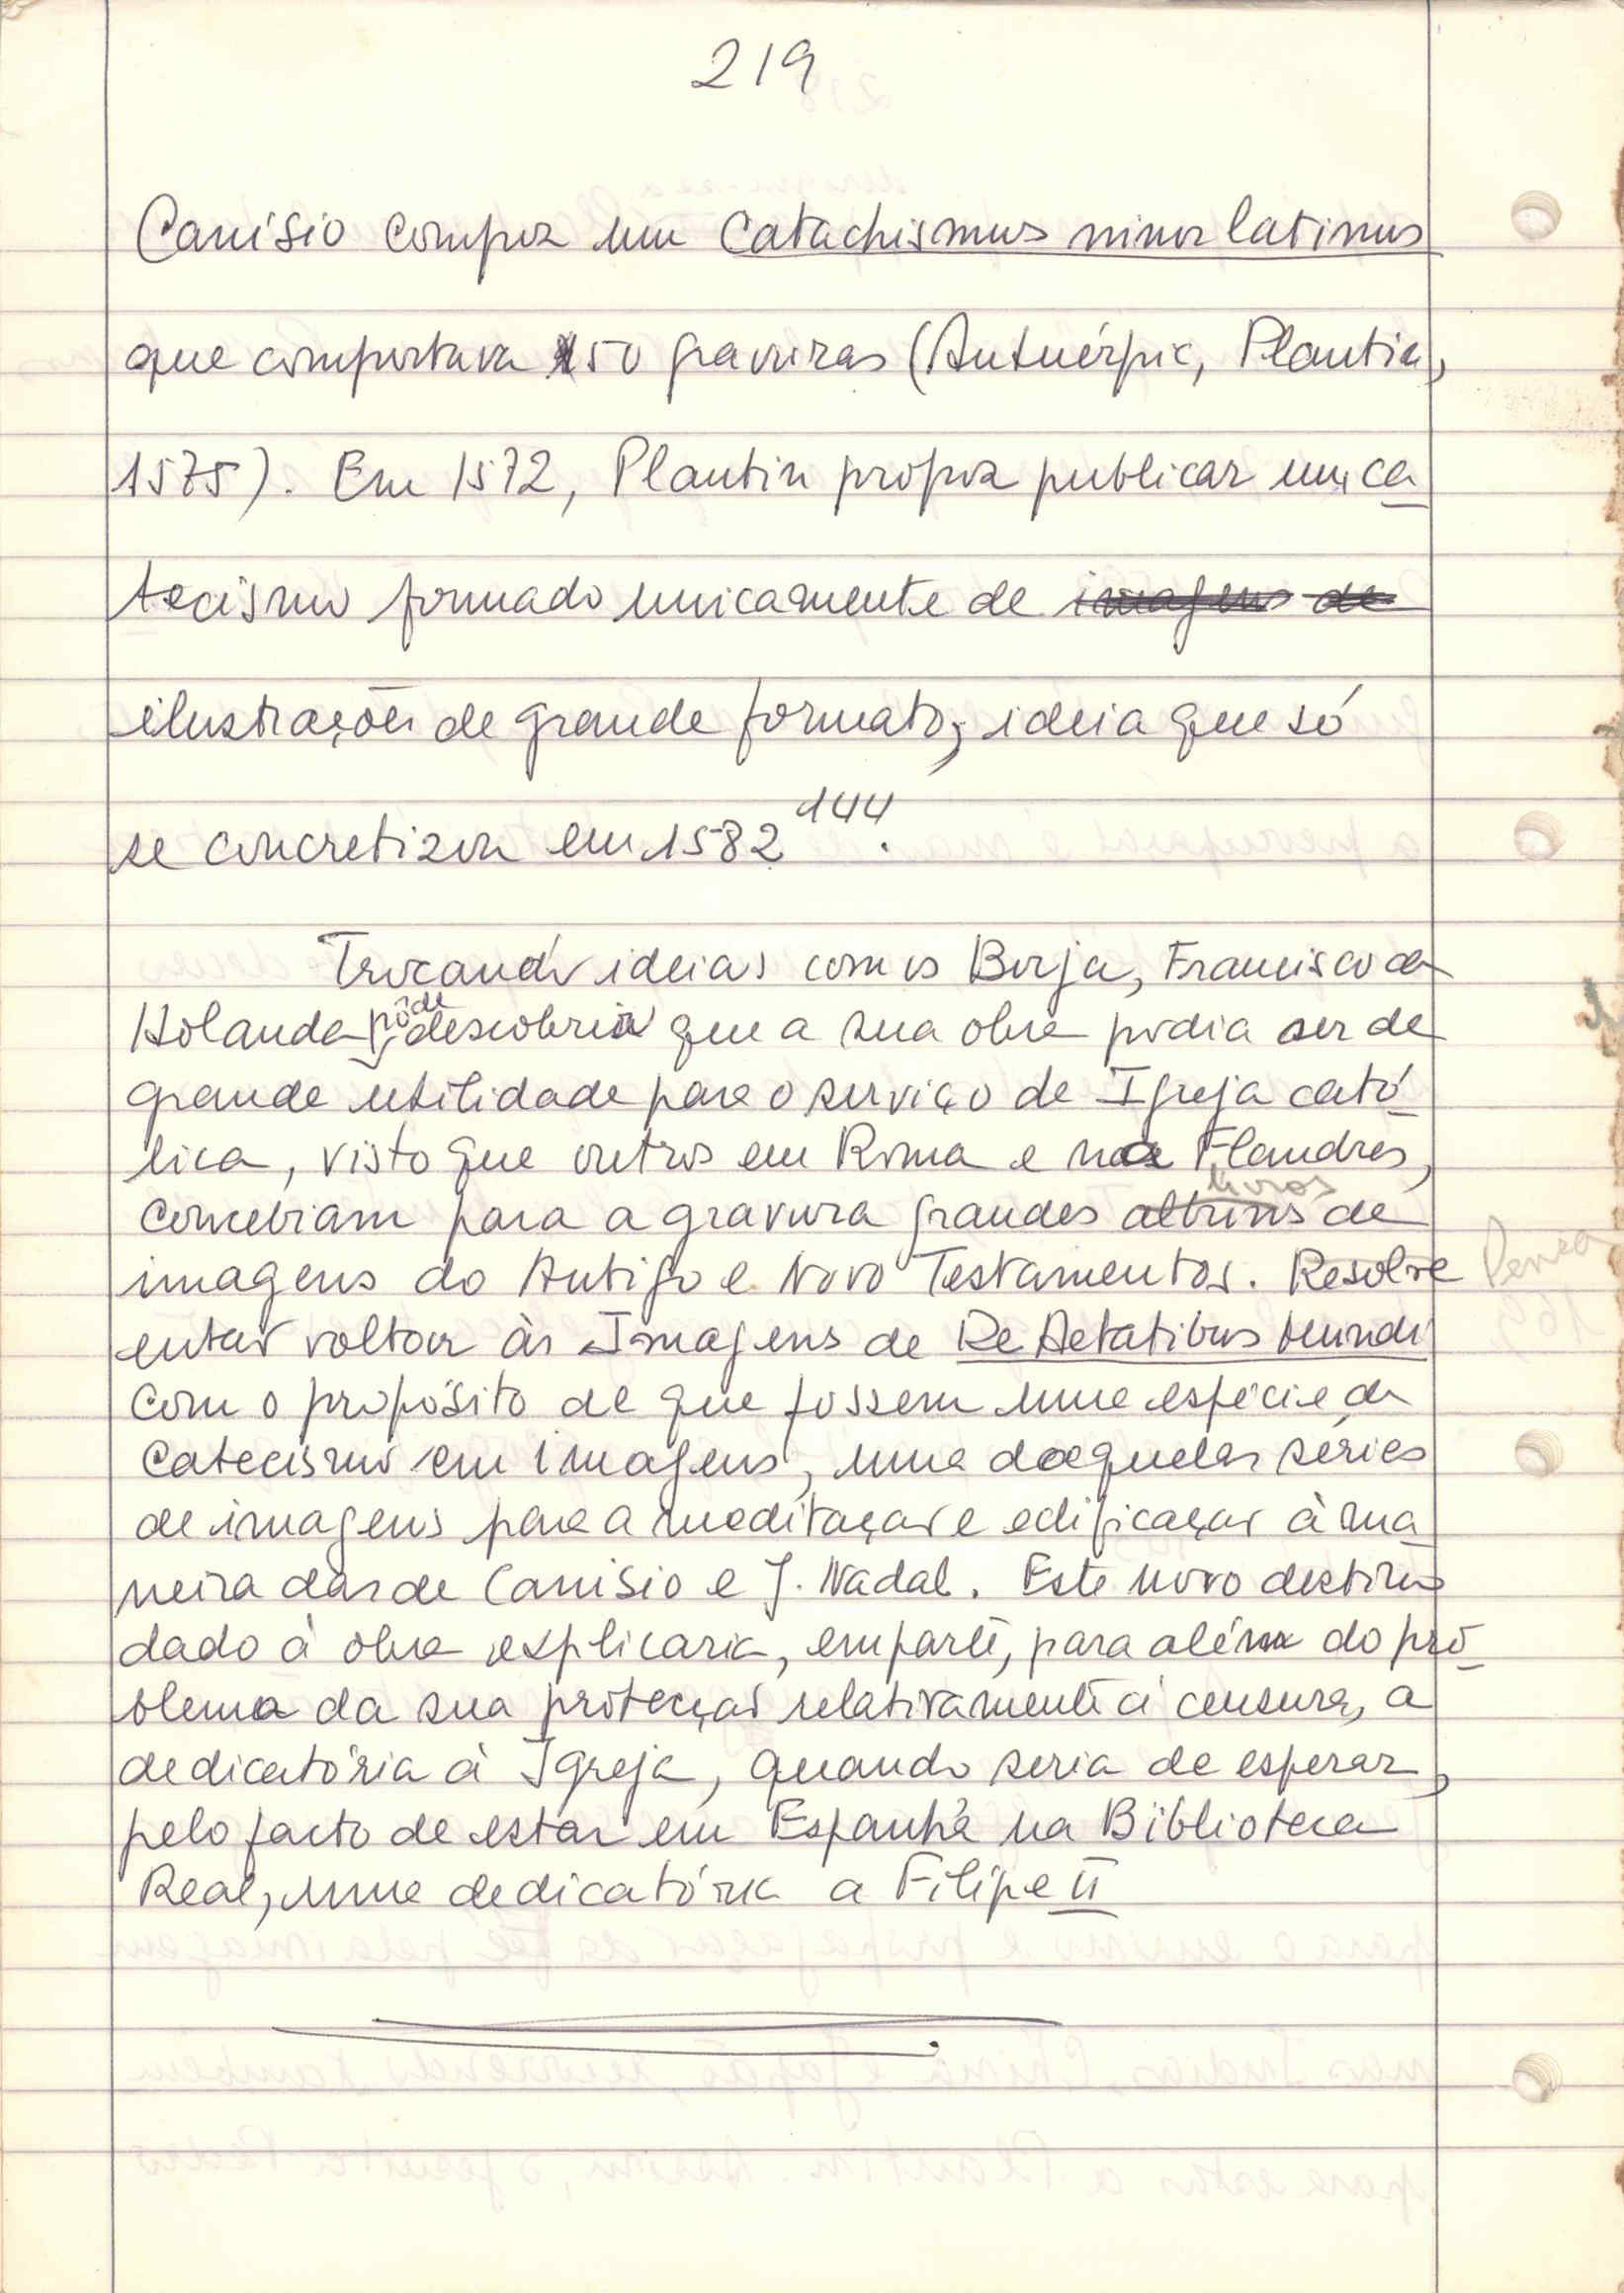 219
Canísio compoz um Catachismus minor latinus
que comportava 50 gravuras (Antuérpia, Plantin,
1575). Em 1572, Plantin propoz publicar um ca
tecismo formado unicamente de imagens de
ilustrações de grande formato, ideia que só
se concretizou em 1582 144.
Trocando ideias com os Borja, Francisco de
Holanda pôde descobrir que a sua obra podia ser de
grande utilidade para o serviço da Igreja cató-
lica, visto que outros em Roma e na Flandres,
concebiam para a gravura grandes livros de
imagens do Antigo e Novo Testamentos. Resolve
então voltar às Imagens de De Aetatibus Mundi
com o propósito de que fossem uma espécie de
catecismo em imagens, uma daquelas séries
de imagens para a meditação e edificação à ma
neira das de Canisio e J. Nadal. Este novo destino
dado à obra explicaria, em parte, para além do pro-
blema da sua protecção relativamente à censura, a
dedicatória à Igreja, quando seria de esperar,
pelo facto de estar em Espanha na Biblioteca
Real, uma dedicatória a Filipe II